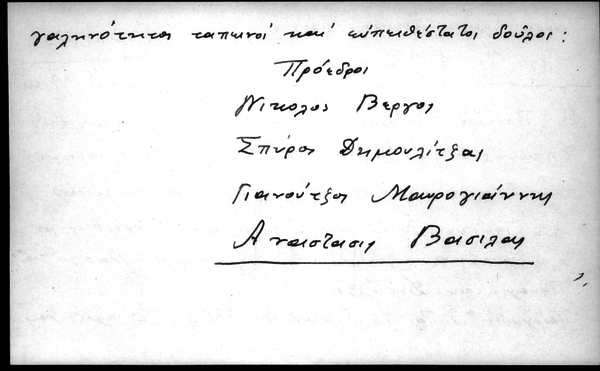 γαληνότητος ταπεινοί καί εὐπειθέστατοι δοῦλοι :
Πρόεδροι
Νικολος Βεργος
Σπύρος Δημουλίτζας
Γιανούτζος Μαυρογιάννης
Αναστασις Βασιλας